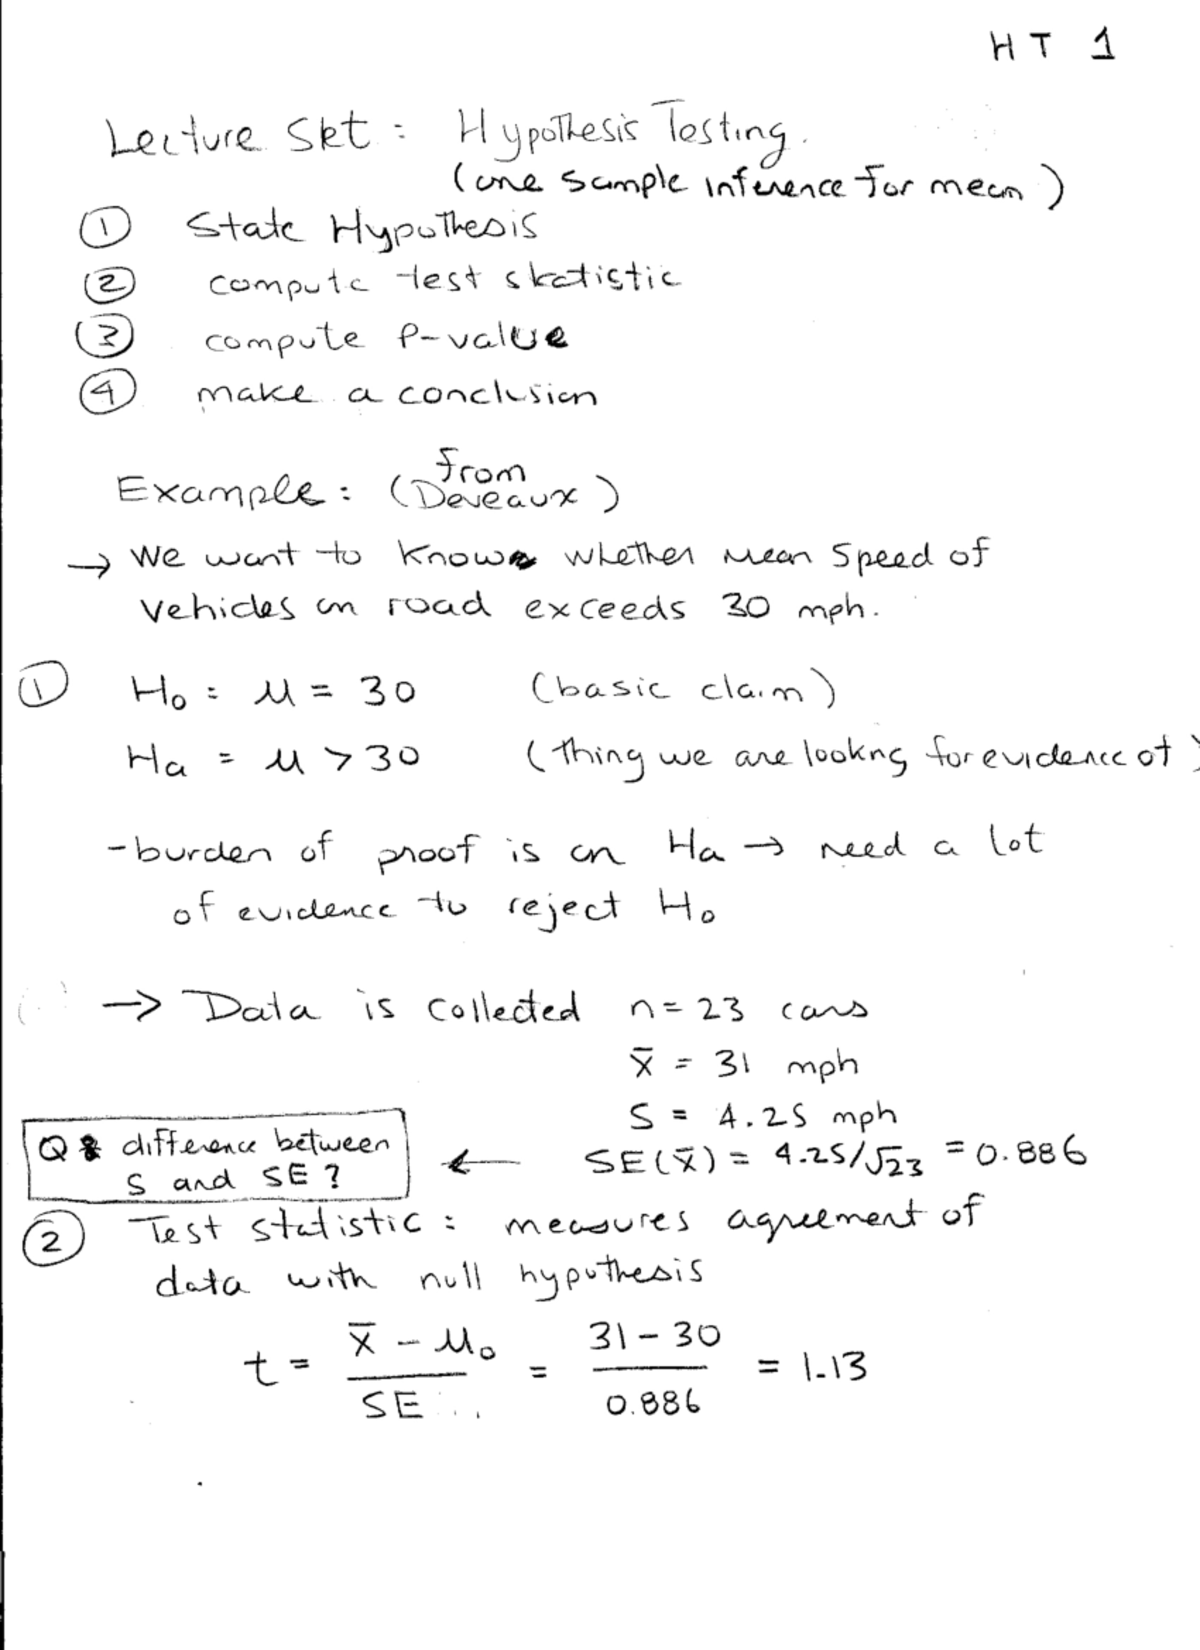 HT 1
Lecture Set: Hypothesis Testing.
(one sample inference for mean)
① State Hypothesis
② compute test statistic
③ compute P-value
④ make a conclusion
Example: (from Deveaux)
→ We want to know whether mean speed of
vehicles on road exceeds 30 mph.
① H₀: μ = 30 (basic claim)
Ha = μ > 30 (thing we are looking for evidence of)
- burden of proof is on Ha → need a lot
of evidence to reject H₀
→ Data is collected n = 23 cars
x̄ = 31 mph
S = 4.25 mph
Q: difference between ← SE(x̄) = 4.25/√23 = 0.886
S and SE?
② Test statistic: measures agreement of
data with null hypothesis
t = (x̄ - μ₀)/SE = (31 - 30)/0.886 = 1.13